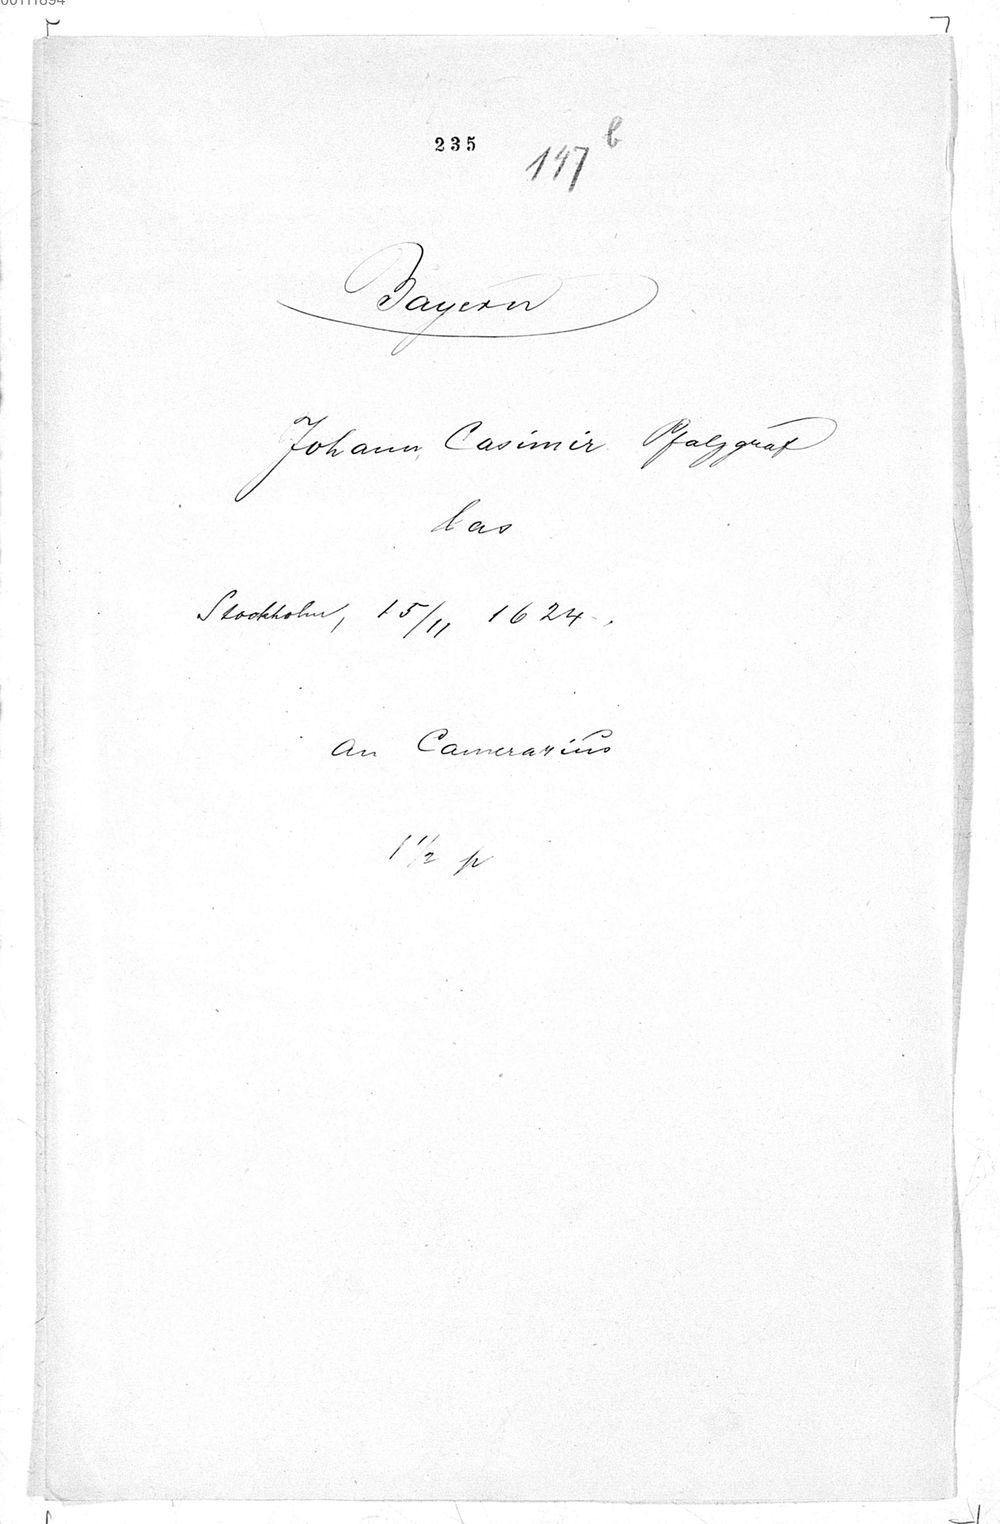 00111894
235
147 b
Bayern
Johann Casimir Pfalzgraf
las
Stockholm, 15/11 1624.
an Camerarius
1 1/2 p